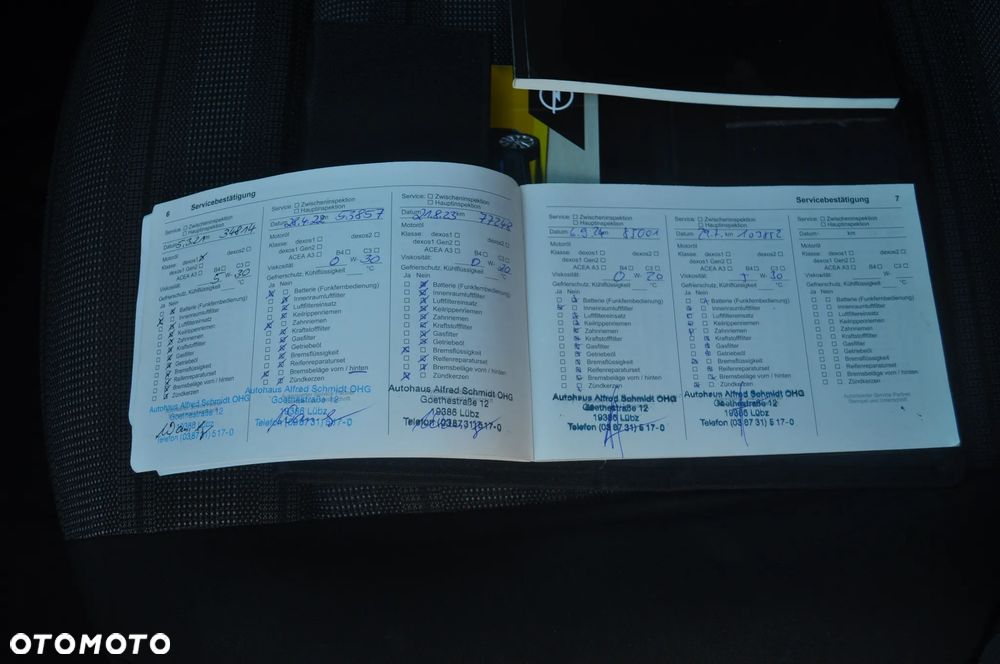 6 Servicebestätigung
Service: Zwischeninspektion
Hauptinspektion
Datum 5.3.21 km 34814
Motoröl
Klasse: dexos1 X dexos2
dexos1 Gen2
ACEA A3 B4 C3
Viskosität 5 W- 30
Gefrierschutz, Kühlflüssigkeit °C
Ja Nein
Batterie (Funkfernbedienung)
Innenraumluftfilter
Luftfiltereinsatz
Keilrippenriemen
Zahnriemen
Kraftstofffilter
Gasfilter
Getriebeöl
Bremsflüssigkeit
Reifenreparaturset
Bremsbeläge vorn / hinten
Zündkerzen
Autohaus Alfred Schmidt OHG
Goethestraße 12
19386 Lübz
Telefon (03 87 31) 5 17-0
Service: Zwischeninspektion
Hauptinspektion
Datum km 53857
Motoröl
Klasse: dexos1 dexos2
dexos1 Gen2
ACEA A3 B4 C3
Viskosität 0 W- 30
Gefrierschutz, Kühlflüssigkeit °C
Ja Nein
Batterie (Funkfernbedienung)
Innenraumluftfilter
Luftfiltereinsatz
Keilrippenriemen
Zahnriemen
Kraftstofffilter
Gasfilter
Getriebeöl
Bremsflüssigkeit
Reifenreparaturset
Bremsbeläge vorn / hinten
Zündkerzen
Autohaus Alfred Schmidt OHG
Goethestraße 12
19386 Lübz
Telefon (03 87 31) 5 17-0
Service: Zwischeninspektion
Hauptinspektion
Datum 21.8.23 km 77248
Motoröl
Klasse: dexos1 dexos2
dexos1 Gen2
ACEA A3 B4 C3
Viskosität 0 W- 20
Gefrierschutz, Kühlflüssigkeit °C
Ja Nein
Batterie (Funkfernbedienung)
Innenraumluftfilter
Luftfiltereinsatz
Keilrippenriemen
Zahnriemen
Kraftstofffilter
Gasfilter
Getriebeöl
Bremsflüssigkeit
Reifenreparaturset
Bremsbeläge vorn / hinten
Zündkerzen
Autohaus Alfred Schmidt OHG
Goethestraße 12
19386 Lübz
Telefon (03 87 31) 5 17-0
Servicebestätigung 7
Service: Zwischeninspektion
Hauptinspektion
Datum 6.9.24 km 85001
Motoröl
Klasse: dexos1 dexos2
dexos1 Gen2
ACEA A3 B4 C3
Viskosität 0 W- 20
Gefrierschutz, Kühlflüssigkeit °C
Ja Nein
Batterie (Funkfernbedienung)
Innenraumluftfilter
Luftfiltereinsatz
Keilrippenriemen
Zahnriemen
Kraftstofffilter
Gasfilter
Getriebeöl
Bremsflüssigkeit
Reifenreparaturset
Bremsbeläge vorn / hinten
Zündkerzen
Autohaus Alfred Schmidt OHG
Goethestraße 12
19386 Lübz
Telefon (03 87 31) 5 17-0
Service: Zwischeninspektion
Hauptinspektion
Datum km 103852
Motoröl
Klasse: dexos1 dexos2
dexos1 Gen2
ACEA A3 B4 C3
Viskosität 5 W- 30
Gefrierschutz, Kühlflüssigkeit °C
Ja Nein
Batterie (Funkfernbedienung)
Innenraumluftfilter
Luftfiltereinsatz
Keilrippenriemen
Zahnriemen
Kraftstofffilter
Gasfilter
Getriebeöl
Bremsflüssigkeit
Reifenreparaturset
Bremsbeläge vorn / hinten
Zündkerzen
Autohaus Alfred Schmidt OHG
Goethestraße 12
19386 Lübz
Telefon (03 87 31) 5 17-0
Service: Zwischeninspektion
Hauptinspektion
Datum km
Motoröl
Klasse: dexos1 dexos2
dexos1 Gen2
ACEA A3 B4 C3
Viskosität W-
Gefrierschutz, Kühlflüssigkeit °C
Ja Nein
Batterie (Funkfernbedienung)
Innenraumluftfilter
Luftfiltereinsatz
Keilrippenriemen
Zahnriemen
Kraftstofffilter
Gasfilter
Getriebeöl
Bremsflüssigkeit
Reifenreparaturset
Bremsbeläge vorn / hinten
Zündkerzen
Autorisierter Service Partner
Stempel und Unterschrift
OTOMOTO